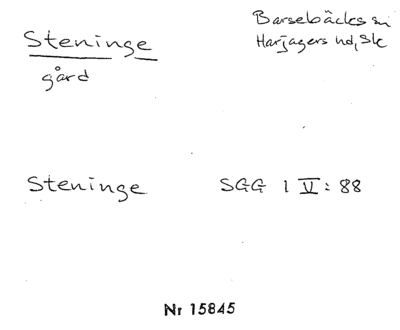 Steninge
gård
Barsebäcks sn
Harjagers hd, Sk
Steninge SGG 1 V: 88
Nr 15845